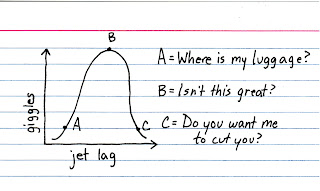 B
A = Where is my luggage?
B = Isn't this great?
C = Do you want me
to cut you?
giggles
A
C
jet lag